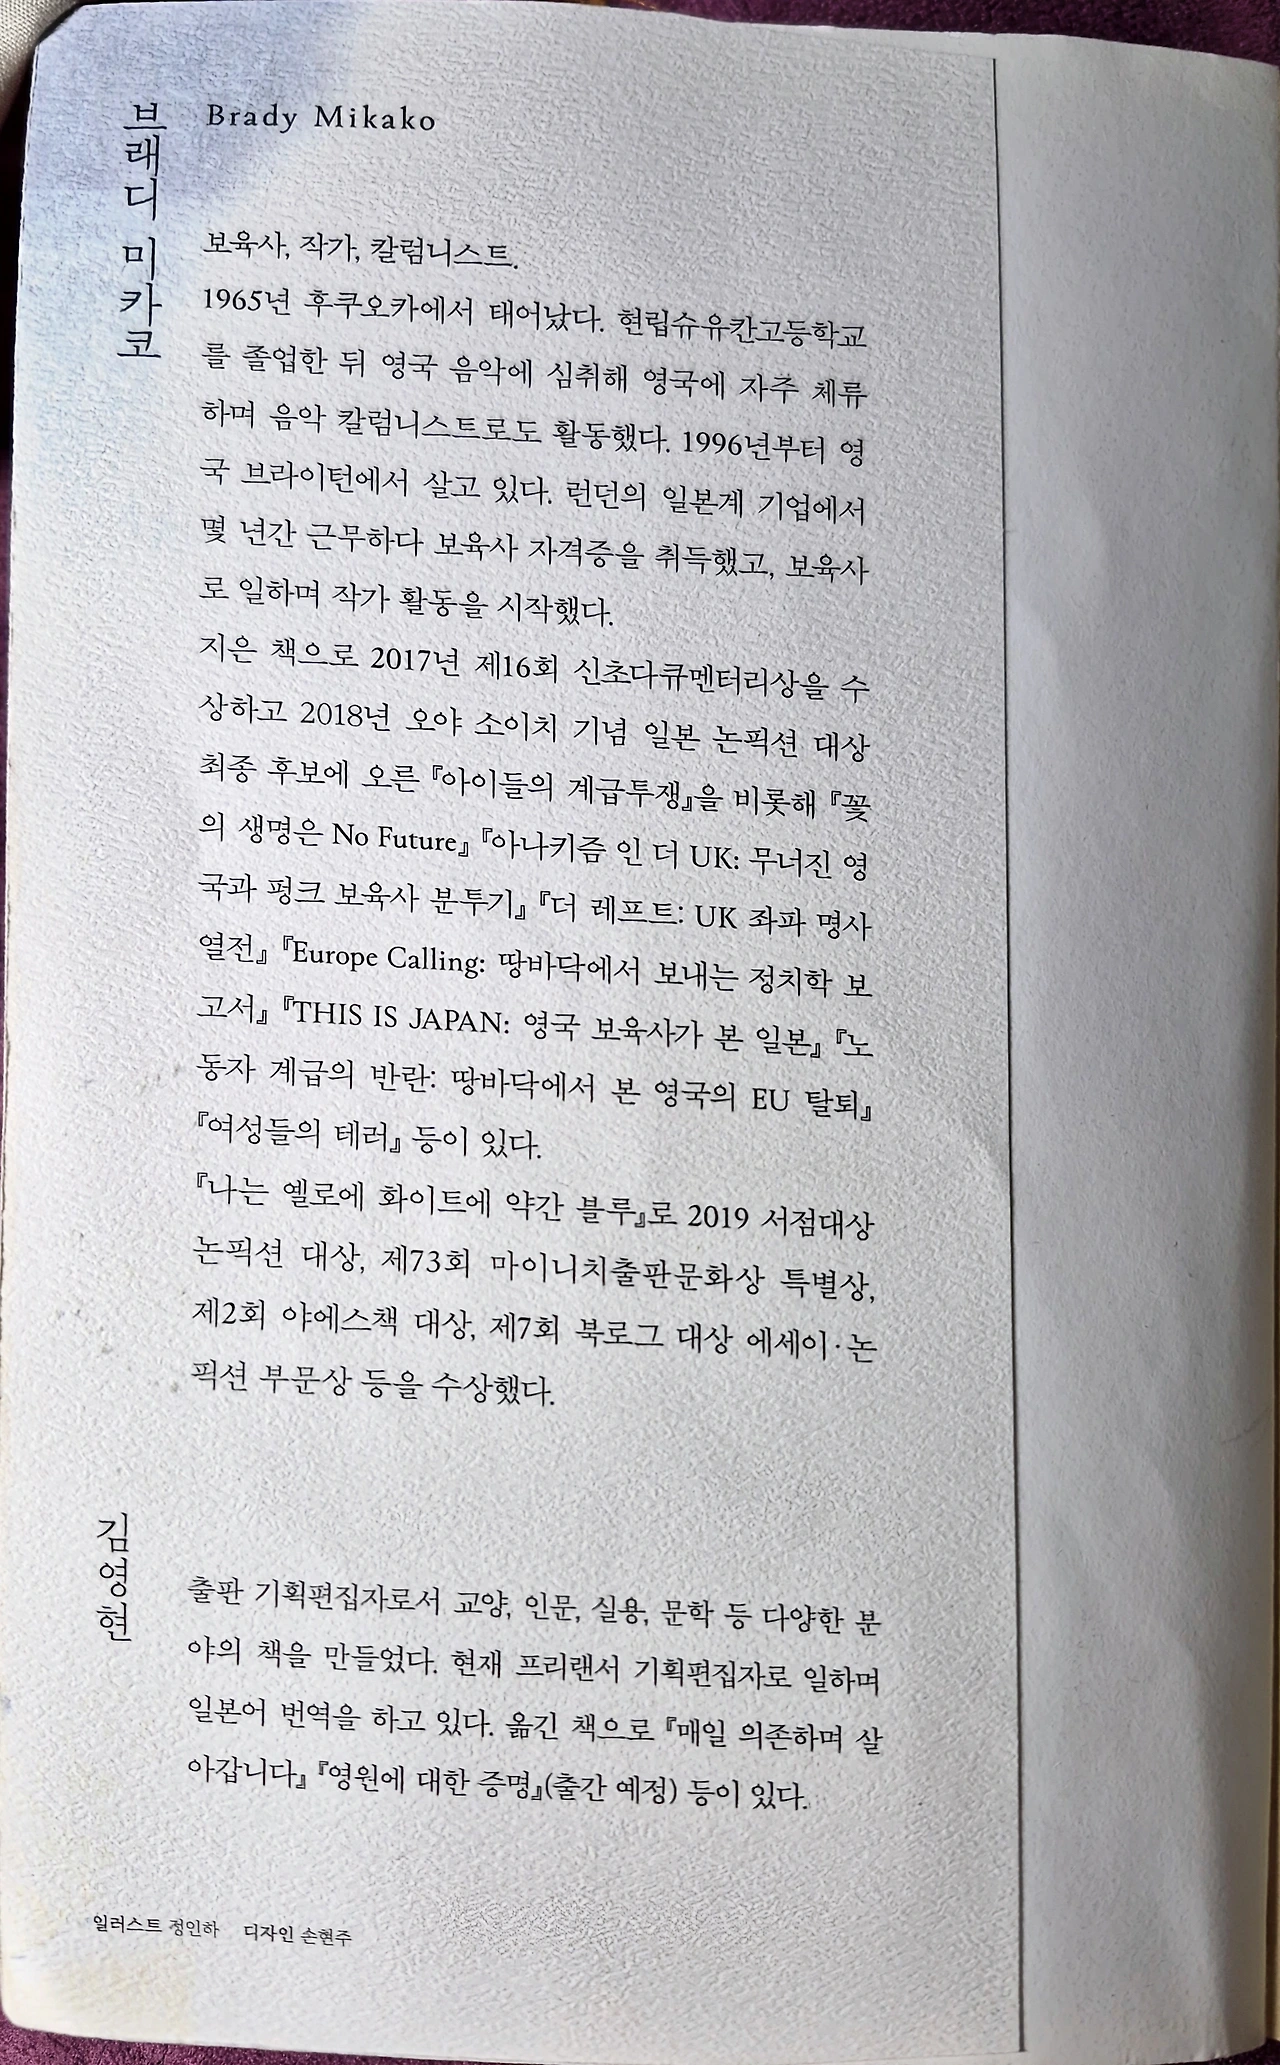 브래디 미카코
Brady Mikako
보육사, 작가, 칼럼니스트.
1965년 후쿠오카에서 태어났다. 현립슈유칸고등학교
를 졸업한 뒤 영국 음악에 심취해 영국에 자주 체류
하며 음악 칼럼니스트로도 활동했다. 1996년부터 영
국 브라이턴에서 살고 있다. 런던의 일본계 기업에서
몇 년간 근무하다 보육사 자격증을 취득했고, 보육사
로 일하며 작가 활동을 시작했다.
지은 책으로 2017년 제16회 신초다큐멘터리상을 수
상하고 2018년 오야 소이치 기념 일본 논픽션 대상
최종 후보에 오른 『아이들의 계급투쟁』을 비롯해 『꽃
의 생명은 No Future』 『아나키즘 인 더 UK: 무너진 영
국과 펑크 보육사 분투기』 『더 레프트: UK 좌파 명사
열전』 『Europe Calling: 땅바닥에서 보내는 정치학 보
고서』 『THIS IS JAPAN: 영국 보육사가 본 일본』 『노
동자 계급의 반란: 땅바닥에서 본 영국의 EU 탈퇴』
『여성들의 테러』 등이 있다.
『나는 옐로에 화이트에 약간 블루』로 2019 서점대상
논픽션 대상, 제73회 마이니치출판문화상 특별상,
제2회 야에스책 대상, 제7회 북로그 대상 에세이·논
픽션 부문상 등을 수상했다.
김영현
출판 기획편집자로서 교양, 인문, 실용, 문학 등 다양한 분
야의 책을 만들었다. 현재 프리랜서 기획편집자로 일하며
일본어 번역을 하고 있다. 옮긴 책으로 『매일 의존하며 살
아갑니다』 『영원에 대한 증명』(출간 예정) 등이 있다.
일러스트 정인하 디자인 손현주